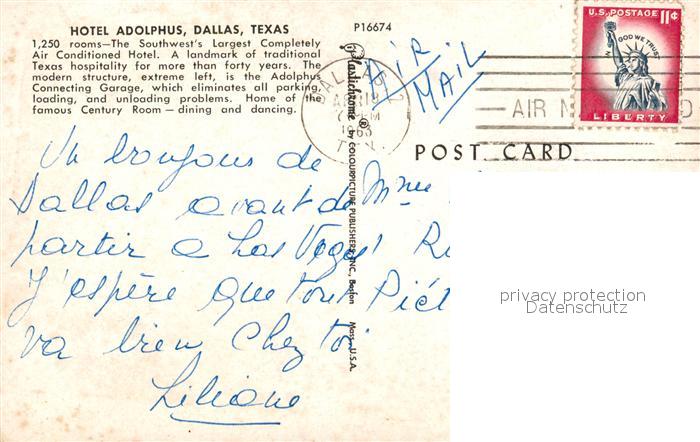 HOTEL ADOLPHUS, DALLAS, TEXAS
1,250 rooms—The Southwest's Largest Completely
Air Conditioned Hotel. A landmark of traditional
Texas hospitality for more than forty years. The
modern structure, extreme left, is the Adolphus
Connecting Garage, which eliminates all parking,
loading, and unloading problems. Home of the
famous Century Room—dining and dancing.
P16674
AIR
MAIL
U.S. POSTAGE 11¢
IN GOD WE TRUST
LIBERTY
DALLAS
1963
TEX.
AIR
POST CARD
Plastichrome® by COLOURPICTURE PUBLISHERS, INC., Boston Mass., U.S.A.
Un bonjour de
Dallas avant de
partir a Las Vegas
J'espère que tout
va bien chez toi
Liliane
Mme
privacy protection
Datenschutz